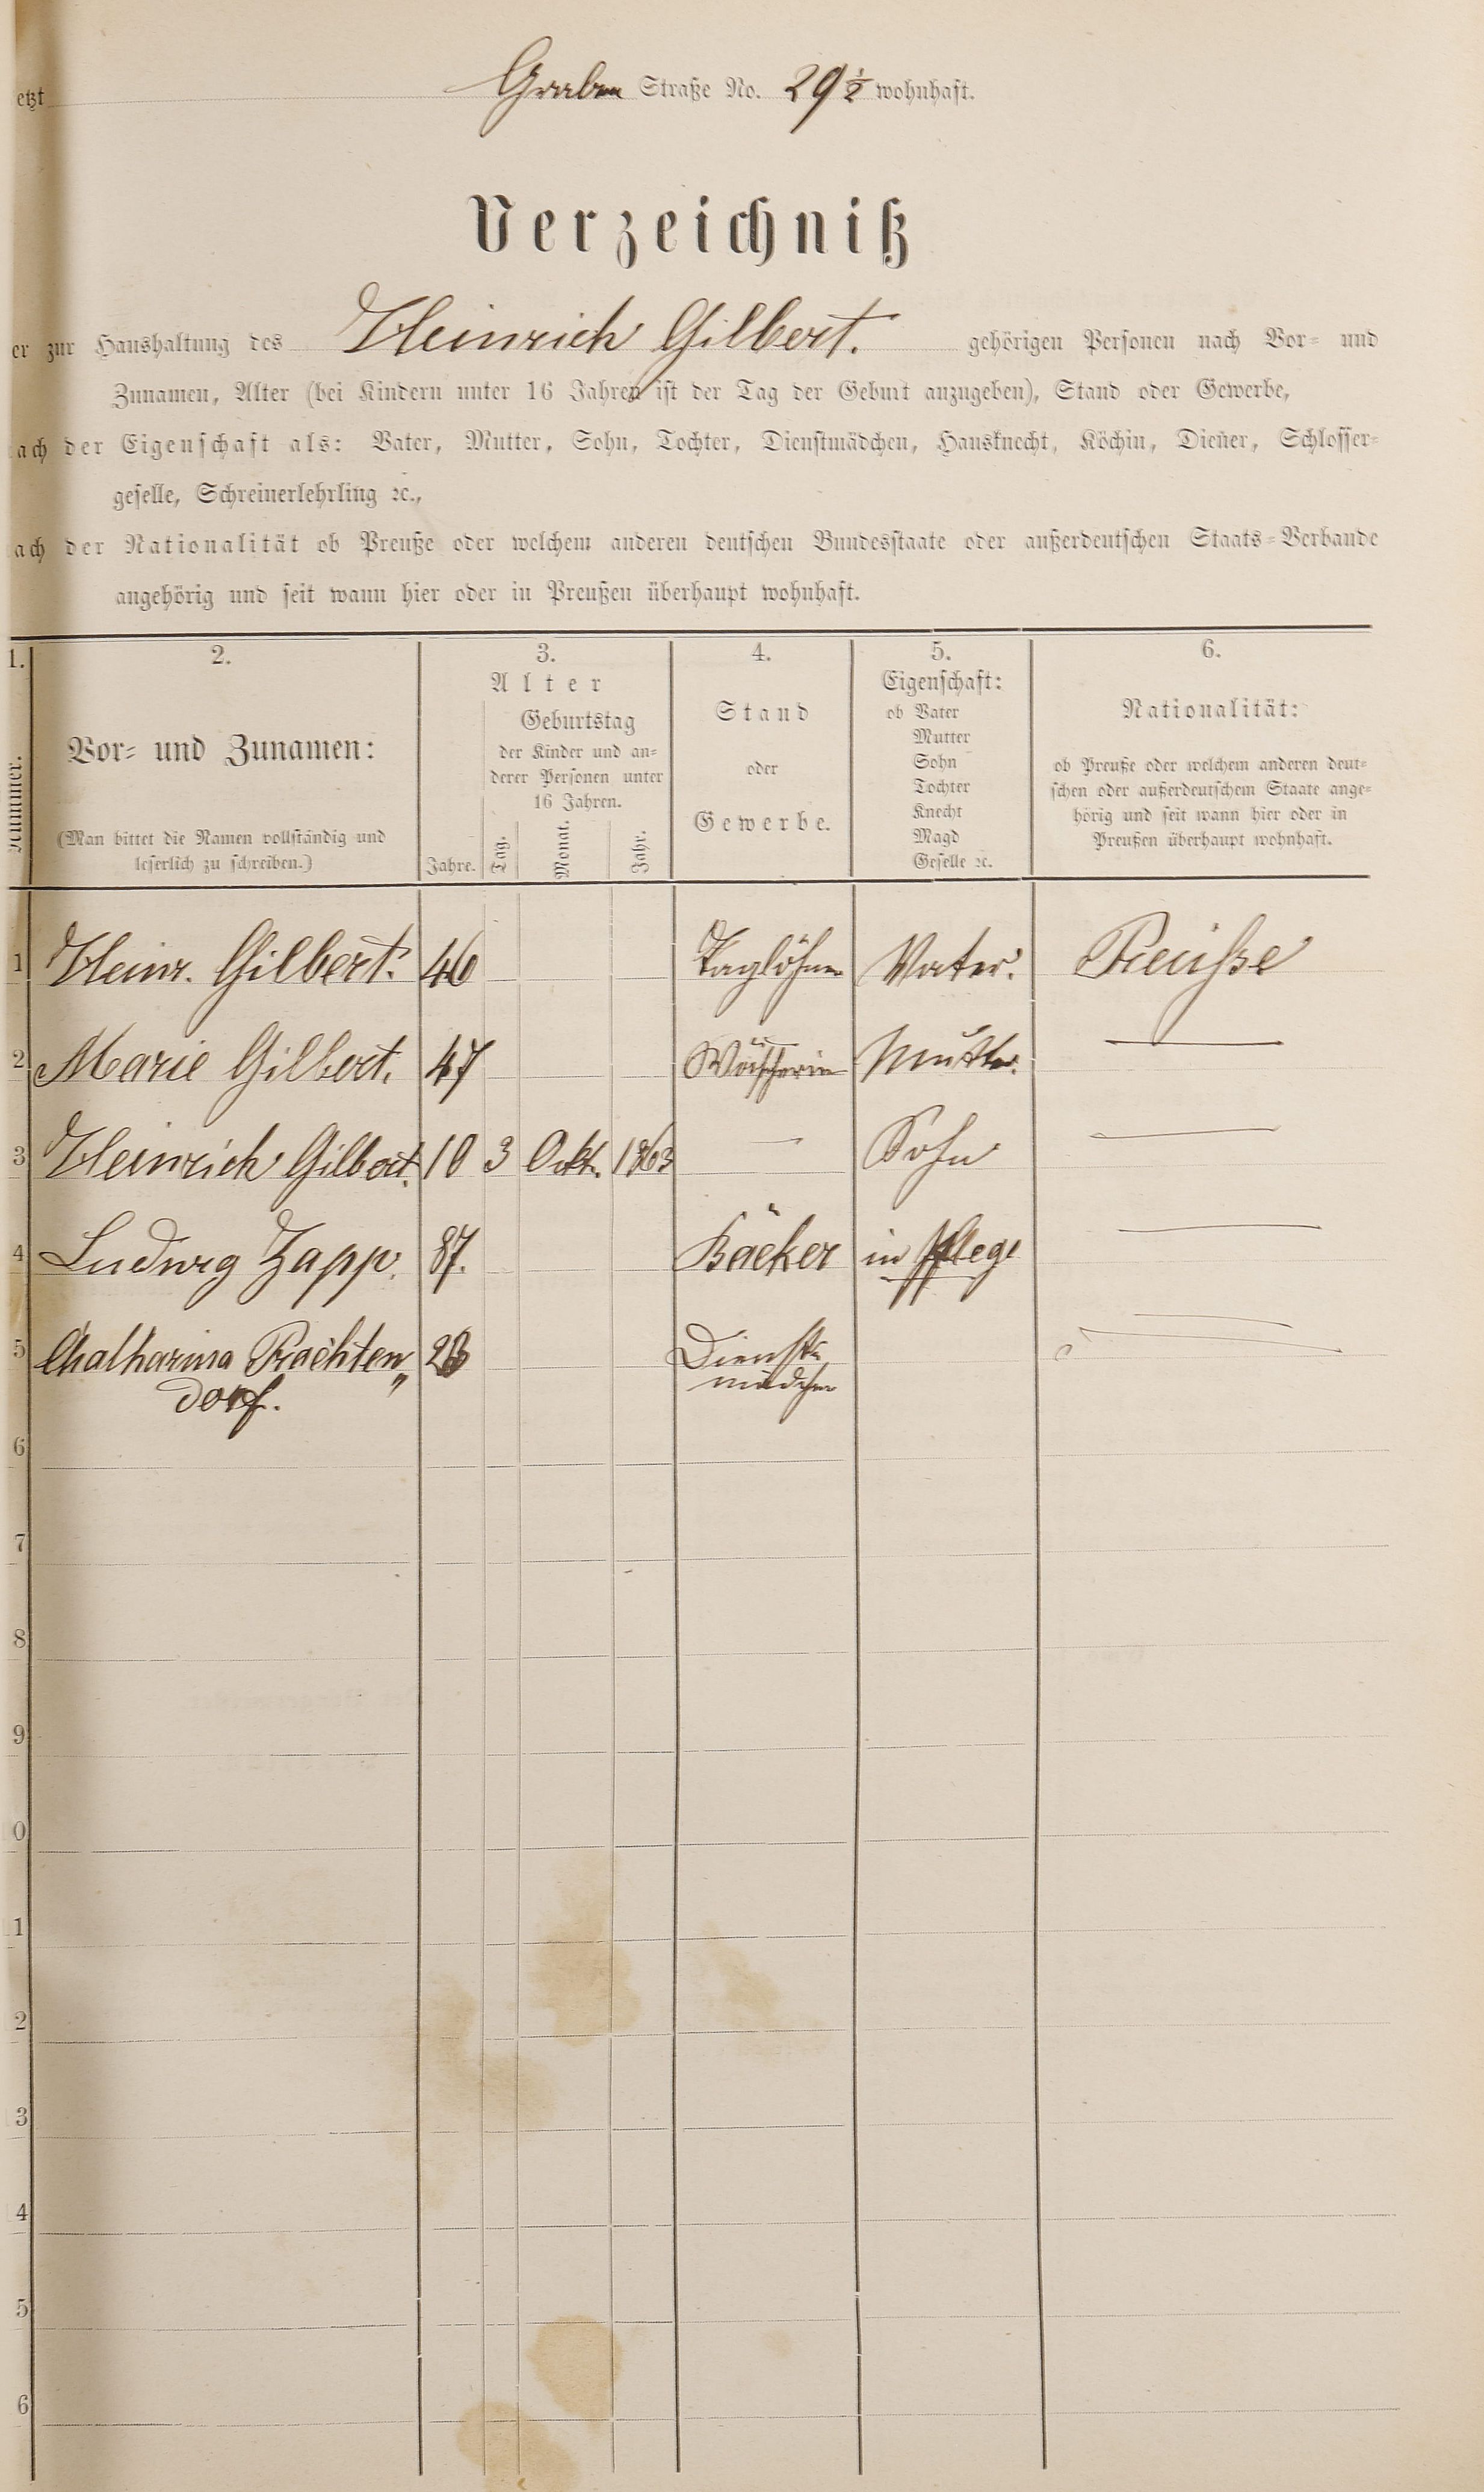 etzt Graben Straße No. 29 ½ wohnhaft.
Verzeichniß
er zur Haushaltung des Heinrich Gilbert. gehörigen Personen nach Vor- und
Zunamen, Alter (bei Kindern unter 16 Jahren ist der Tag der Geburt anzugeben), Stand oder Gewerbe,
ach der Eigenschaft als: Vater, Mutter, Sohn, Tochter, Dienstmädchen, Hausknecht, Köchin, Diener, Schlosser-
geselle, Schreinerlehrling ꝛc.,
ach der Nationalität ob Preuße oder welchem anderen deutschen Bundesstaate oder außerdeutschen Staats-Verbande
angehörig und seit wann hier oder in Preußen überhaupt wohnhaft.
1. 2. 3. 4. 5. 6.
Nummer.
Vor- und Zunamen:
(Man bittet die Namen vollständig und
leserlich zu schreiben.)
Alter
Geburtstag
der Kinder und an-
derer Personen unter
16 Jahren.
Jahre. Tag. Monat. Jahr.
Stand
oder
Gewerbe.
Eigenschaft:
ob Vater
Mutter
Sohn
Tochter
Knecht
Magd
Geselle ꝛc.
Nationalität:
ob Preuße oder welchem anderen deut-
schen oder außerdeutschem Staate ange-
hörig und seit wann hier oder in
Preußen überhaupt wohnhaft.
1 Heinr. Gilbert. 46 Taglöhner Vater. Preuße
2 Marie Gilbert. 47 Wäscherin Mutter. —
3 Heinrich Gilbert. 10 3 Okt. 1863 — Sohn —
4 Ludwig Zapp. 87. Bäcker in Pflege —
5 Chatharina Prachten„ Dienst-
dorf. mädchen
6
7
8
9
0
1
2
3
4
5
6